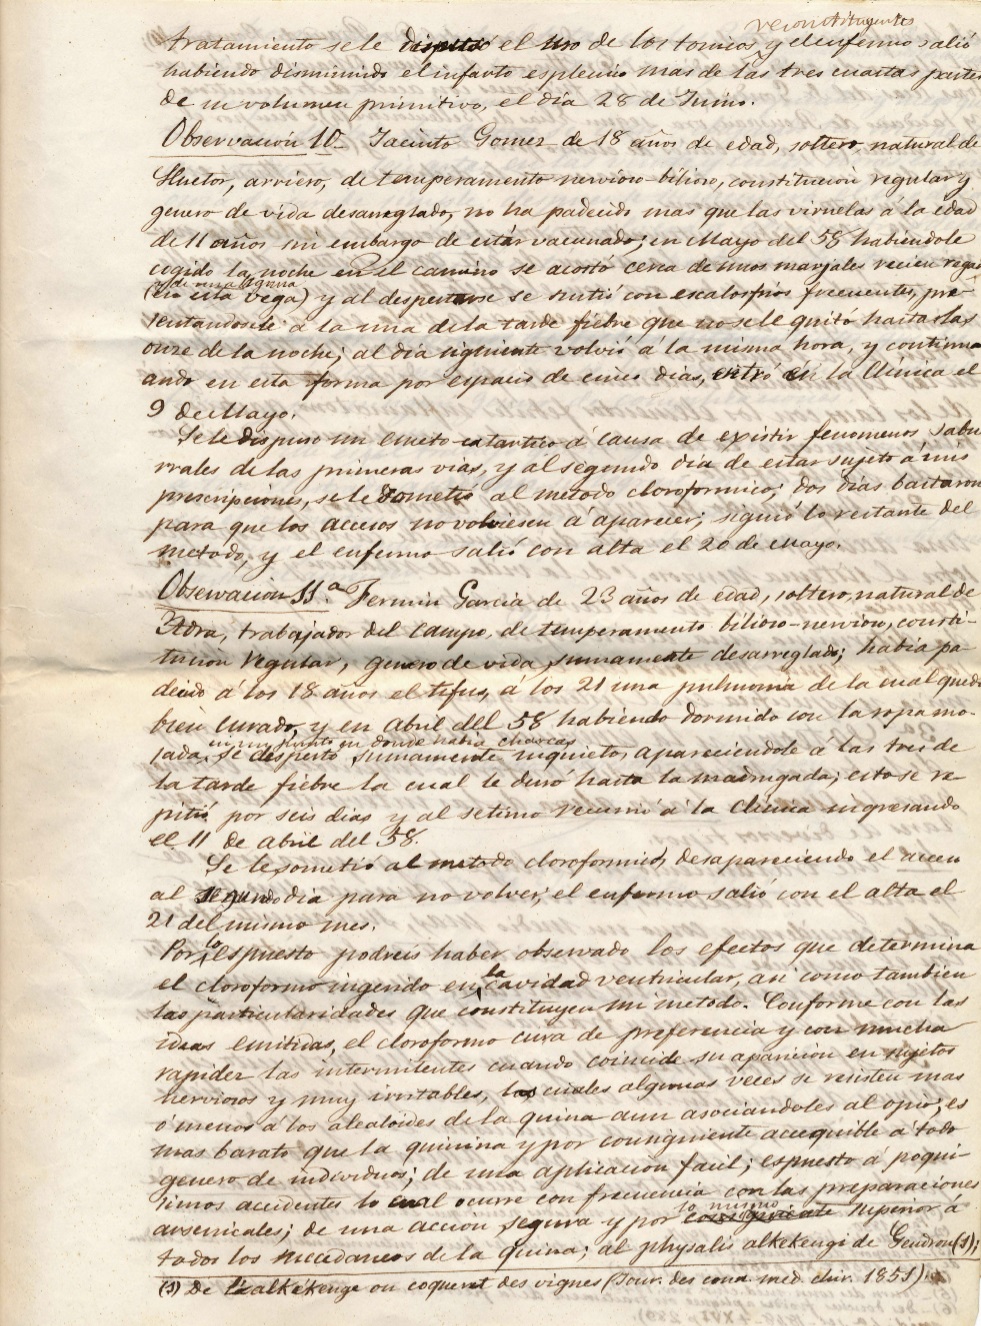 reconstituyentes
tratamiento se le dispuso el uso de los tonicos y el enfermo salió
habiendo disminuido el infarto esplenico mas de las tres cuartas partes
de su volumen primitivo, el dia 28 de Junio.
Observacion 10. Jacinto Gomez de 18 años de edad, soltero, natural de
Huetor, arriero, de temperamento nervioso-bilioso, constitucion regular y
genero de vida desarreglado, no ha padecido mas que las viruelas á la edad
de 11 años sin embargo de estár vacunado; en Mayo del 58 habiendole
cogido la noche en el camino se acostó cerca de unos marjales recien rega
y de una laguna
(en esta vega) y al despertarse se sintió con escalosfrios frecuentes, pre-
sentandosele á la una de la tarde fiebre que no se le quitó hasta las
onze de la noche; al dia siguiente volvió á la misma hora, y continu
ando en esta forma por espacio de cinco dias, entró en la Clínica el
9 de Mayo.
Se le dispuso un emeto-catartico á causa de existir fenomenos sabu
rrales de las primeras vias, y al segundo dia de estar sujeto á mis
prescripciones, se le sometió al metodo cloroformico; dos dias bastaron
para que los accesos no volviesen á aparecer; siguió lo restante del
metodo, y el enfermo salió con alta el 20 de Mayo.
Observacion 11.ª Fermin Garcia de 23 años de edad, soltero, natural de
Adra, trabajador del campo, de temperamento bilioso-nervioso, consti-
tucion regular, genero de vida sumamente desarreglado; habia pa-
decido á los 18 años el tifus, á los 21 una pulmonia de la cual quedó
bien curado, y en Abril del 58 habiendo dormido con la ropa mo-
en un punto en donde habia charcas
jada, se despertó sumamente inquieto, apareciendole á las tres de
la tarde fiebre la cual le duró hasta la madrugada; esto se re
pitió por seis dias y al setimo recurrió á la clínica ingresando
el 11 de Abril del 58.
Se le sometió al metodo cloroformico, desapareciendo el acceso
al segundo dia para no volver; el enfermo salió con el alta el
21 del mismo mes.
Por lo espuesto podreis haber observado los efectos que determina
el cloroformo ingerido en la cavidad ventricular, asi como tambien
las particularidades que constituyen mi metodo. Conforme con las
ideas emitidas, el cloroformo cura de preferencia y con mucha
rapidez las intermitentes cuando coincide su aparicion en sujetos
nerviosos y muy irritables, las cuales algunas veces se resisten mas
ó menos á los alcaloides de la quina aun asociandoles al opio; es
mas barato que la quinina y por consiguiente accequible á todo
genero de individuos; de una aplicacion facil; espuesto á poqui-
simos accidentes lo cual ocurre con frecuencia con las preparaciones
lo mismo
arsenicales; de una accion segura y por consiguiente superior á
todos los sucedaneos de la quina; al physalis alkekengi de Gendron (1);
(1) De l'alkékenge ou coqueret des vignes (Jour. des conn. med. chir. 1851).